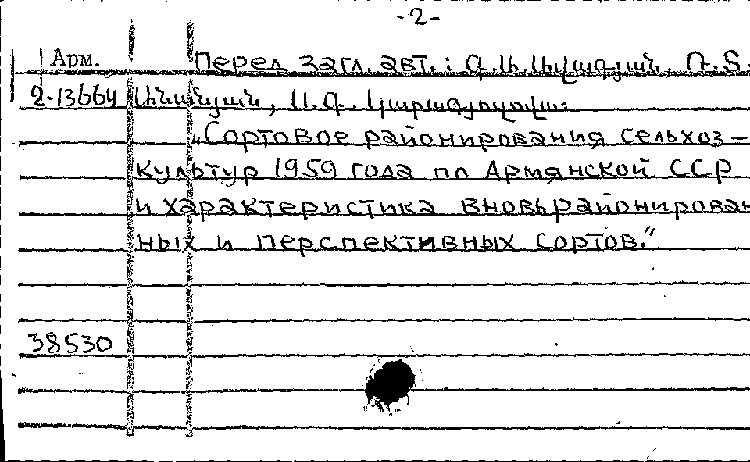 -2-
Арм. Перед загл. авт.:
2-13664
„Сортовое районирования сельхоз-
культур 1959 года по Армянской ССР
и характеристика вновьрайонирован
ных и перспективных сортов."
38530